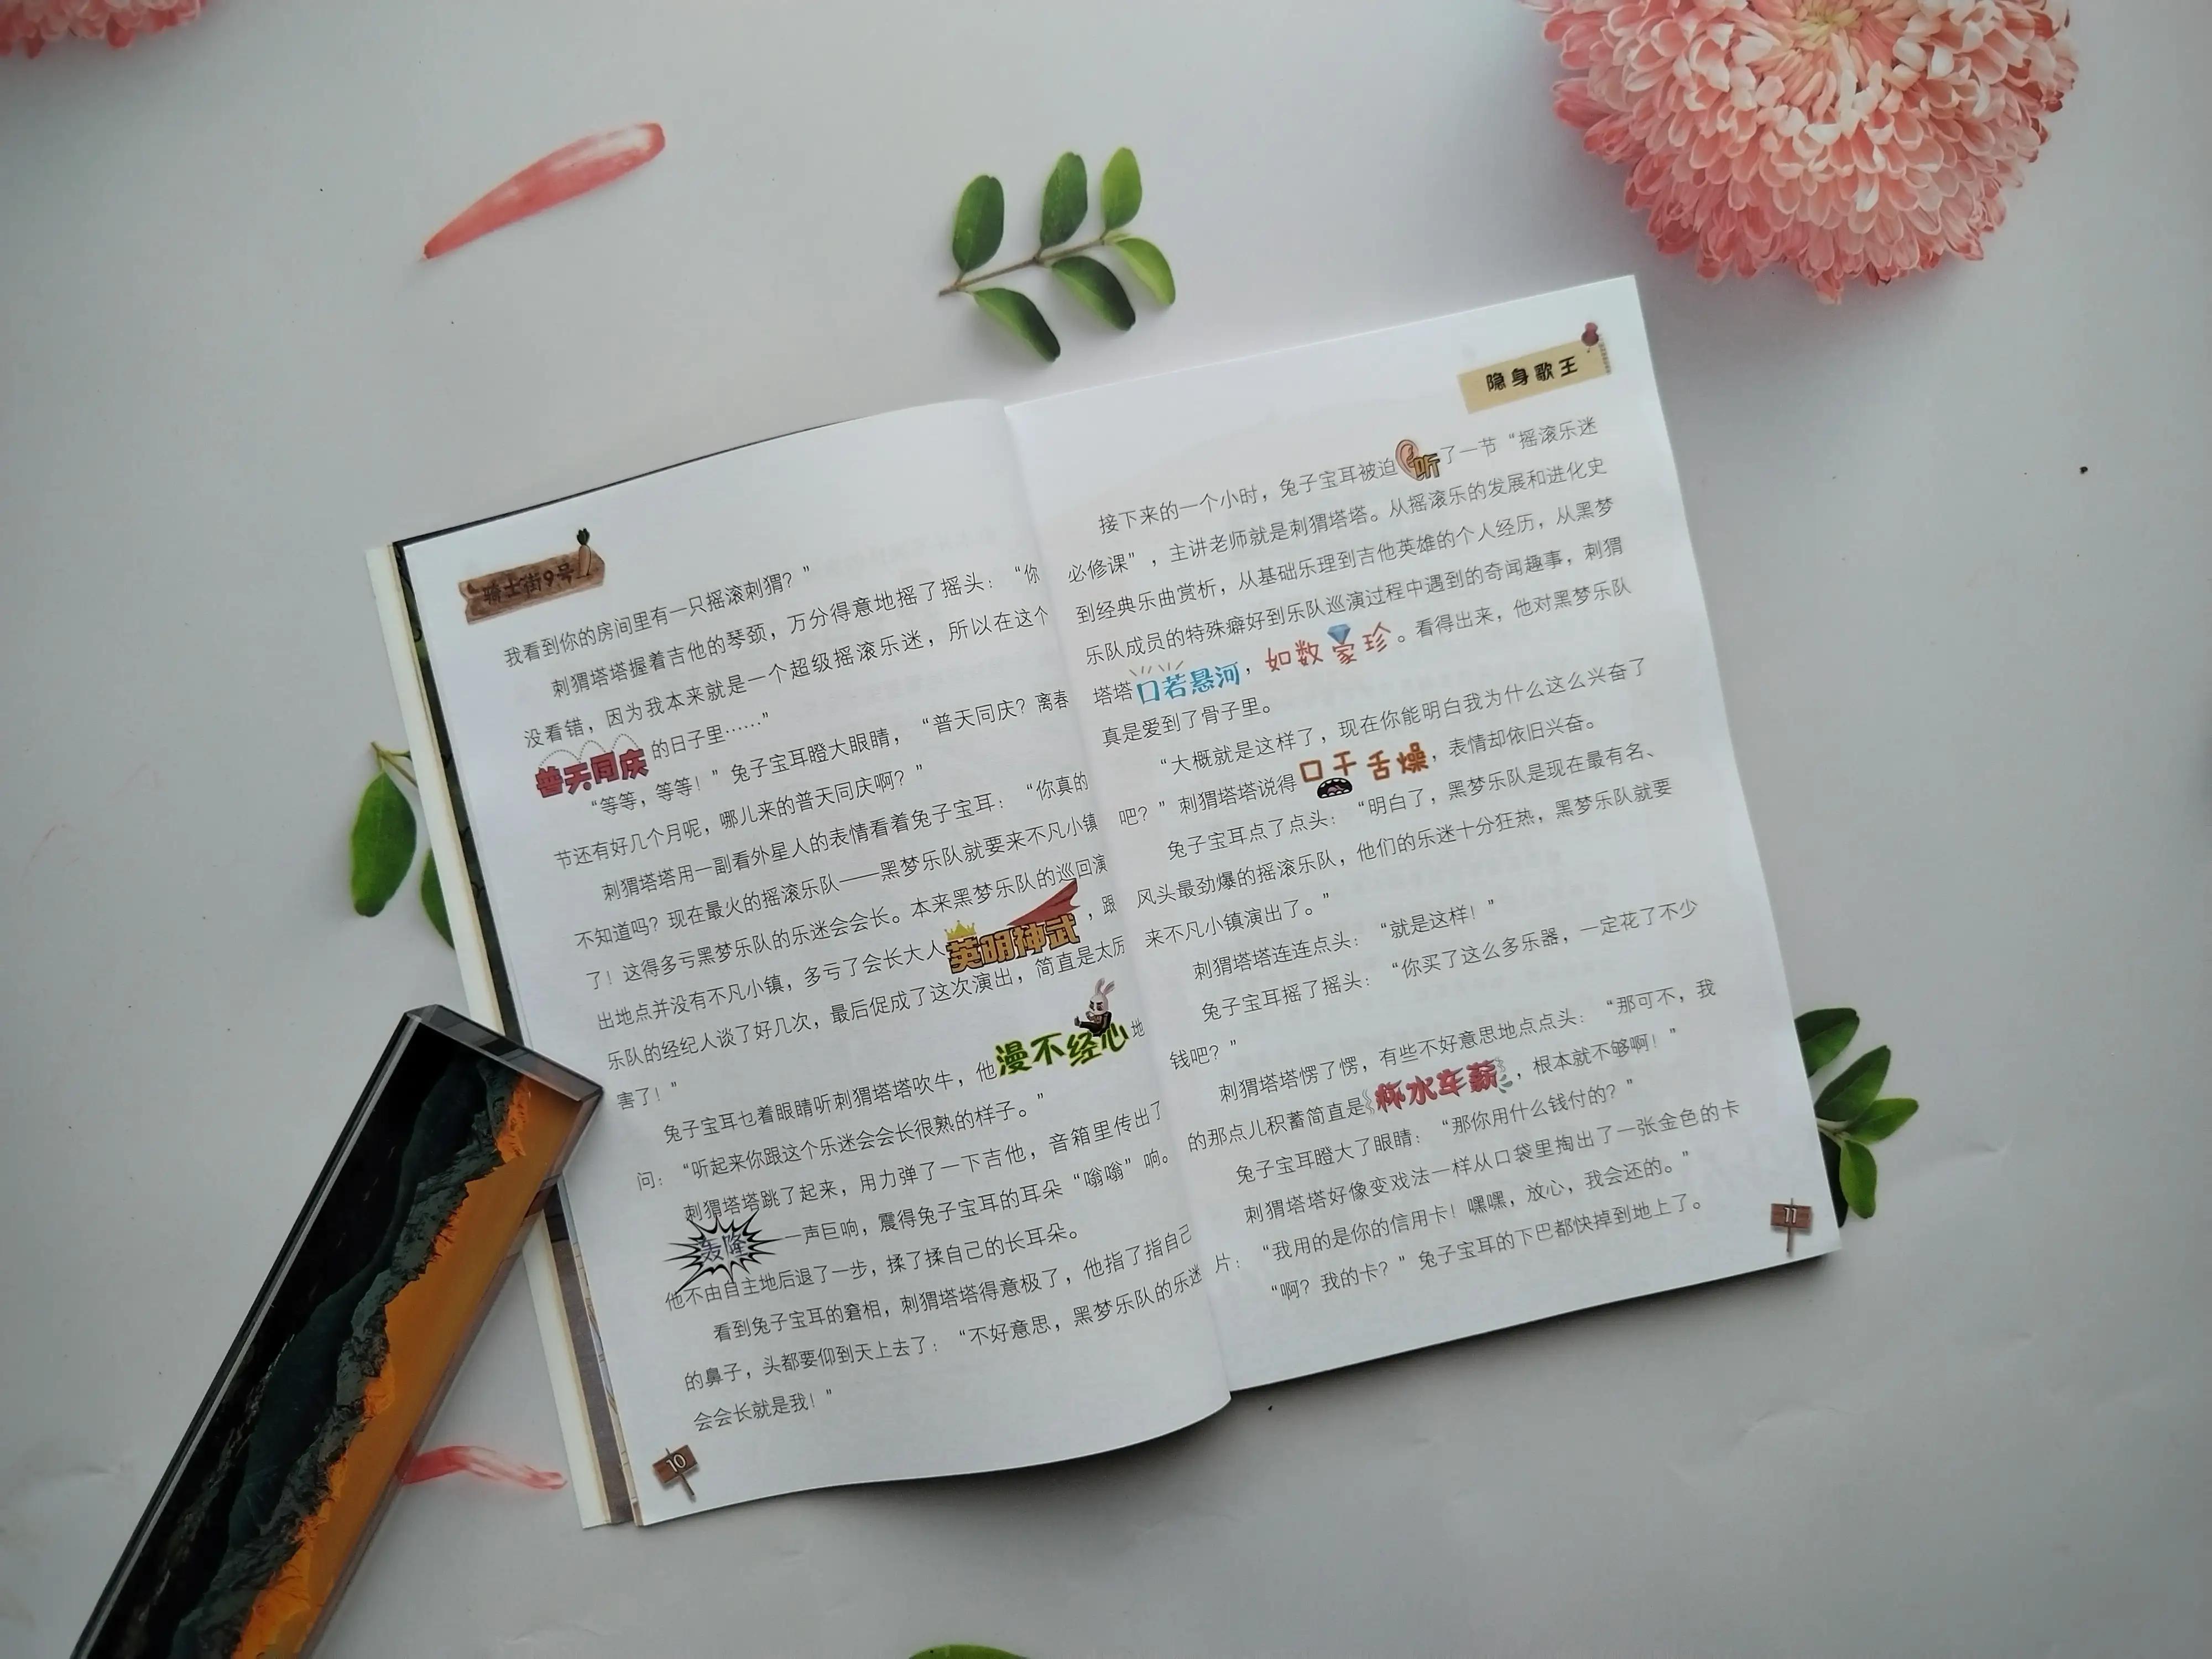 骑士街9号
我看到你的房间里有一只摇滚刺猬？”
刺猬塔塔握着吉他的琴颈，万分得意地摇了摇头：“你
没看错，因为我本来就是一个超级摇滚乐迷，所以在这个
普天同庆的日子里……”
“等等，等等！”兔子宝耳瞪大眼睛，“普天同庆？离春
节还有好几个月呢，哪儿来的普天同庆啊？”
刺猬塔塔用一副看外星人的表情看着兔子宝耳：“你真的
不知道吗？现在最火的摇滚乐队——黑梦乐队就要来不凡小镇
了！这得多亏黑梦乐队的乐迷会会长。本来黑梦乐队的巡回演
出地点并没有不凡小镇，多亏了会长大人英明神武，跟
乐队的经纪人谈了好几次，最后促成了这次演出，简直是太厉
害了！”
兔子宝耳也着眼睛听刺猬塔塔吹牛，他漫不经心地
问：“听起来你跟这个乐迷会会长很熟的样子。”
刺猬塔塔跳了起来，用力弹了一下吉他，音箱里传出了
轰隆一声巨响，震得兔子宝耳的耳朵“嗡嗡”响。
他不由自主地后退了一步，揉了揉自己的长耳朵。
看到兔子宝耳的窘相，刺猬塔塔得意极了，他指了指自己
的鼻子，头都要仰到天上去了：“不好意思，黑梦乐队的乐迷
会会长就是我！”
10
隐身歌王
接下来的一个小时，兔子宝耳被迫听了一节“摇滚乐迷
必修课”，主讲老师就是刺猬塔塔。从摇滚乐的发展和进化史
到经典乐曲赏析，从基础乐理到吉他英雄的个人经历，从黑梦
乐队成员的特殊癖好到乐队巡演过程中遇到的奇闻趣事，刺猬
塔塔口若悬河，如数家珍。看得出来，他对黑梦乐队
真是爱到了骨子里。
“大概就是这样了，现在你能明白我为什么这么兴奋了
吧？”刺猬塔塔说得口干舌燥，表情却依旧兴奋。
兔子宝耳点了点头：“明白了，黑梦乐队是现在最有名、
风头最劲爆的摇滚乐队，他们的乐迷十分狂热，黑梦乐队就要
来不凡小镇演出了。”
刺猬塔塔连连点头：“就是这样！”
兔子宝耳摇了摇头：“你买了这么多乐器，一定花了不少
钱吧？”
刺猬塔塔愣了愣，有些不好意思地点点头：“那可不，我
的那点儿积蓄简直是杯水车薪，根本就不够啊！”
兔子宝耳瞪大了眼睛：“那你用什么钱付的？”
刺猬塔塔好像变戏法一样从口袋里掏出了一张金色的卡
片：“我用的是你的信用卡！嘿嘿，放心，我会还的。”
“啊？我的卡？”兔子宝耳的下巴都快掉到地上了。
11